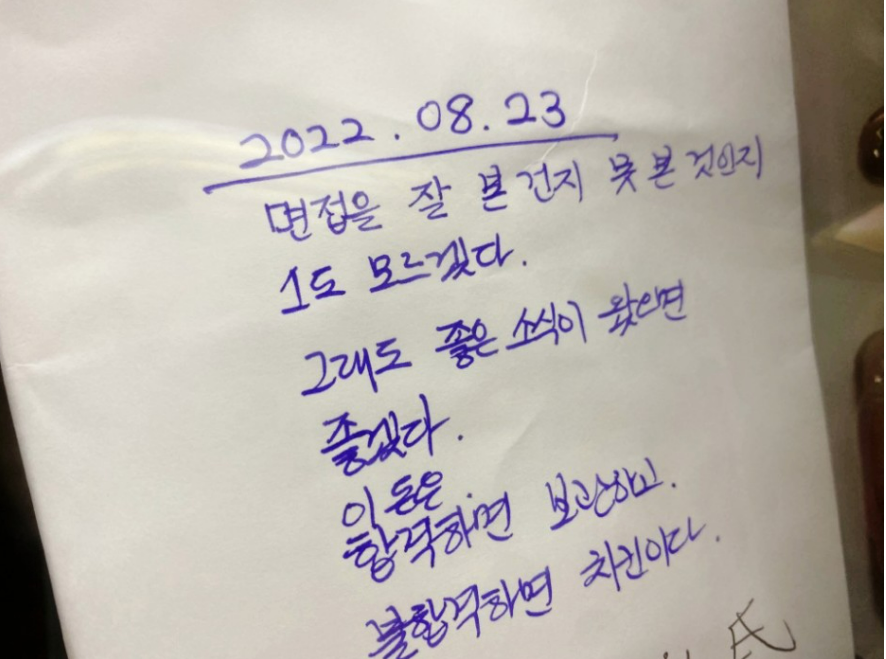 2022.08.23
면접을 잘 본건지 못 본 것인지
1도 모르겠다.
그래도 좋은 소식이 왔으면
좋겠다.
이 돈은.
합격하면 보관하고.
불합격하면 치킨이다.
氏